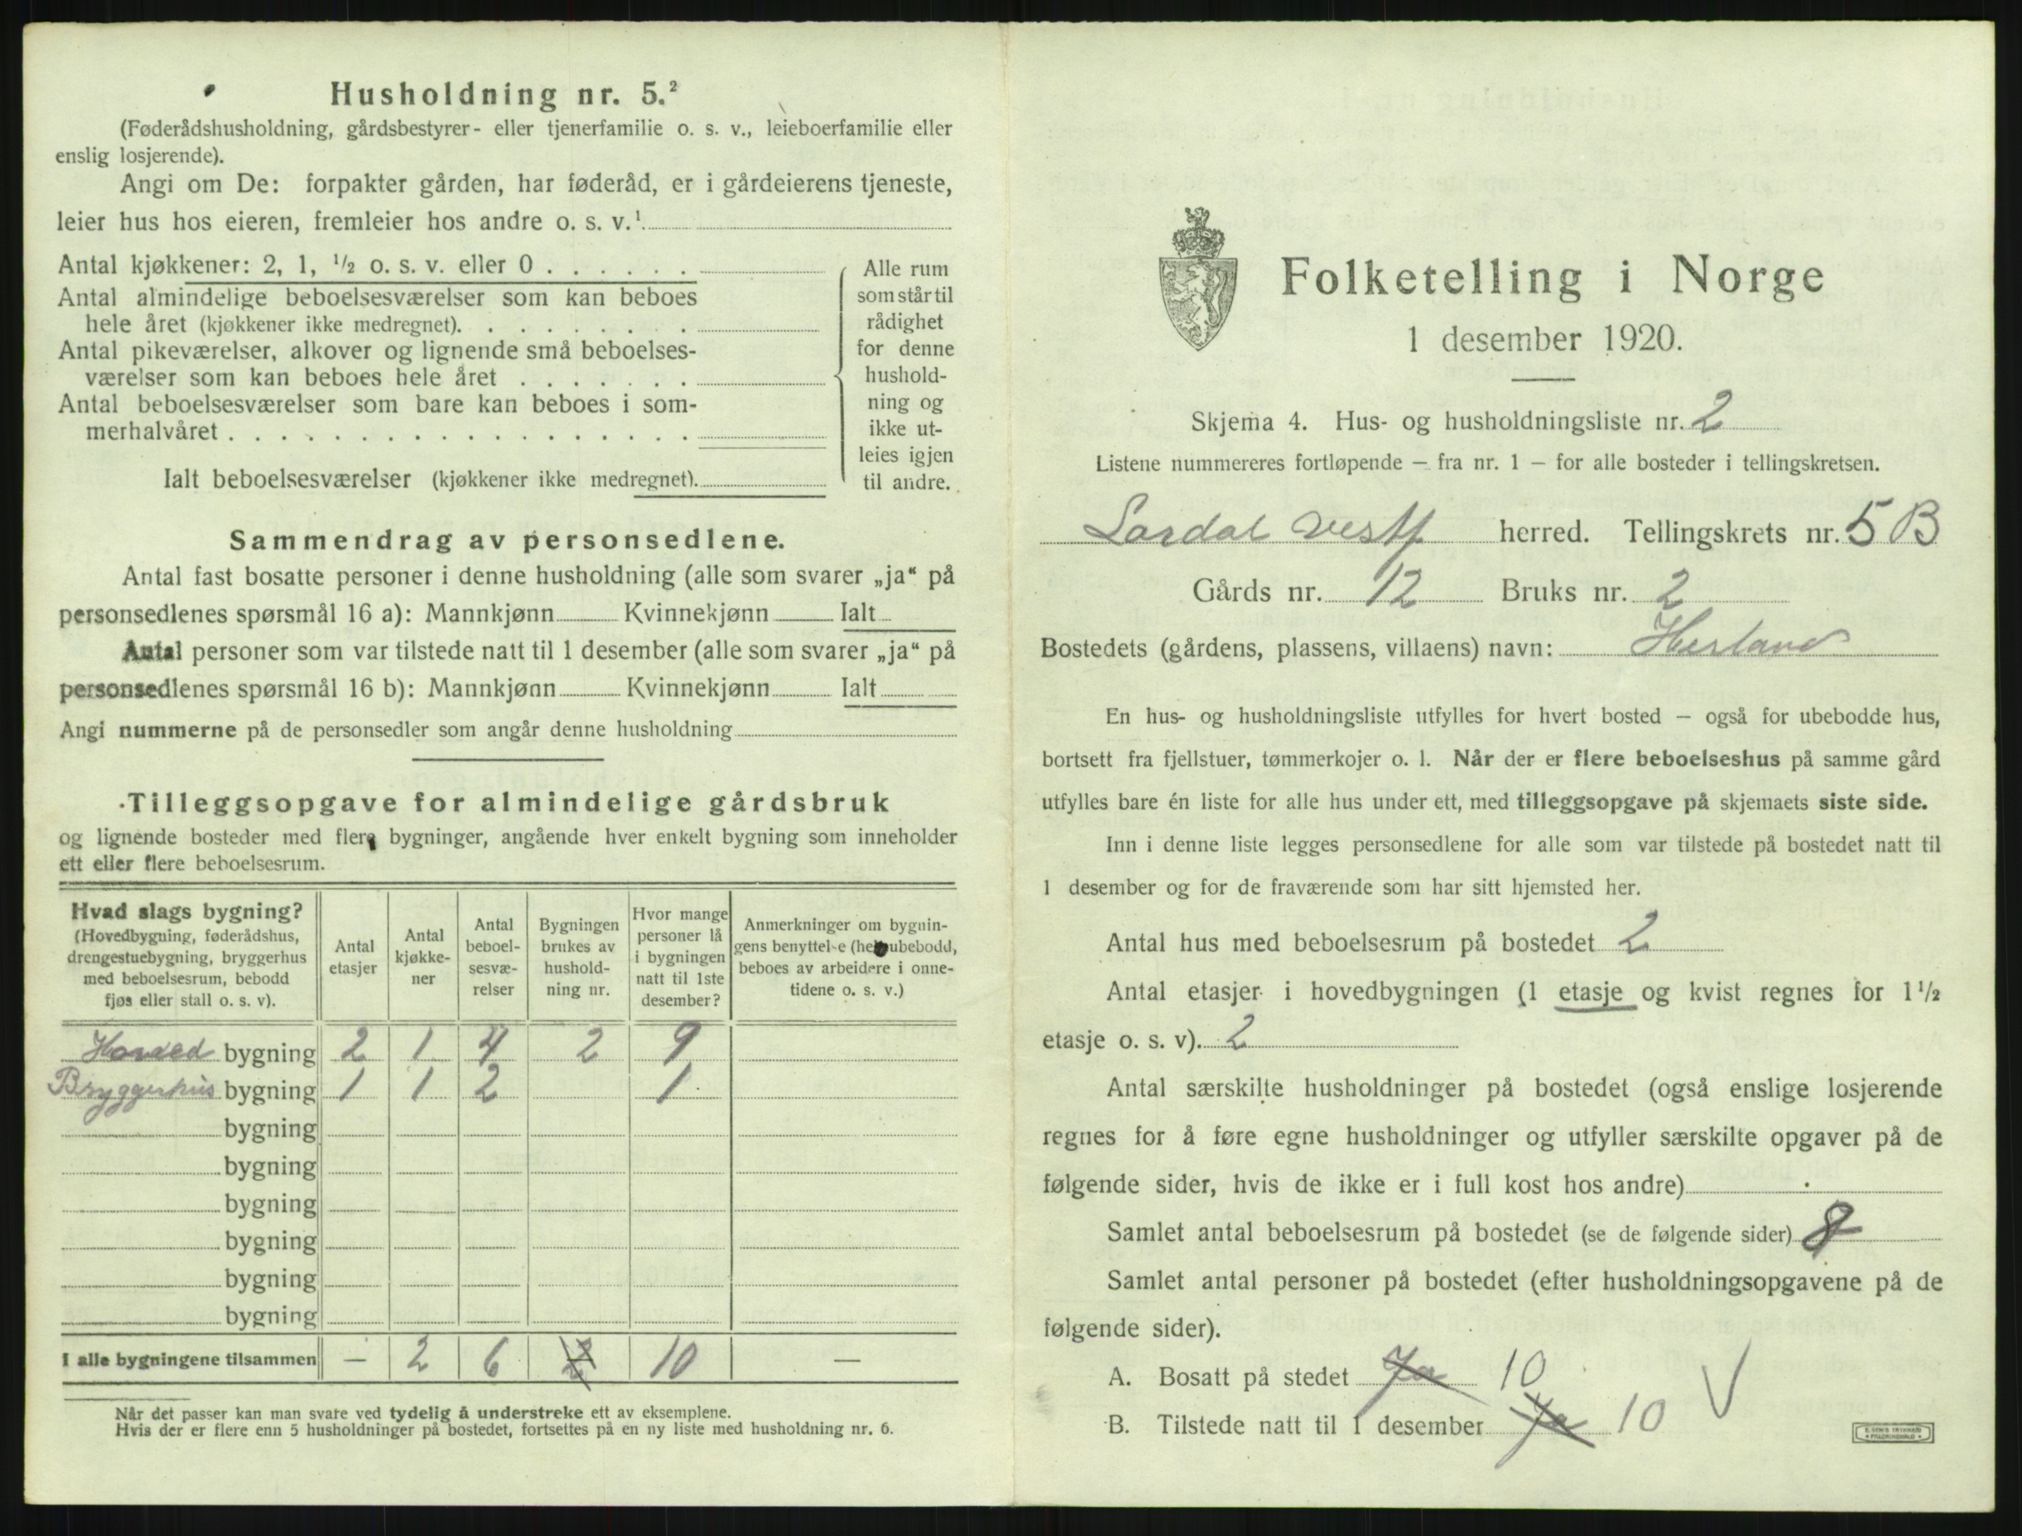 Husholdning nr. 5.²
(Føderådshusholdning, gårdsbestyrer- eller tjenerfamilie o. s. v., leieboerfamilie eller
enslig losjerende).
Angi om De: forpakter gården, har føderåd, er i gårdeierens tjeneste,
leier hus hos eieren, fremleier hos andre o. s. v.¹
Antal kjøkkener: 2, 1, ½ o. s. v. eller 0 . . . . . .
Antal almindelige beboelsesværelser som kan beboes
hele året (kjøkkener ikke medregnet). . . . . . . . .
Antal pikeværelser, alkover og lignende små beboelses-
værelser som kan beboes hele året . . . . . . .
Antal beboelsesværelser som bare kan beboes i som-
merhalvåret . . . . . . . . . . . . . . . . . .
Ialt beboelsesværelser (kjøkkener ikke medregnet).
Alle rum
som står til
rådighet
for denne
hushold-
ning og
ikke ut-
leies igjen
til andre.
Sammendrag av personsedlene.
Antal fast bosatte personer i denne husholdning (alle som svarer „ja“ på
personsedlenes spørsmål 16 a): Mannkjønn Kvinnekjønn Ialt
Antal personer som var tilstede natt til 1 desember (alle som svarer „ja“ på
personsedlenes spørsmål 16 b): Mannkjønn Kvinnekjønn Ialt
Angi nummerne på de personsedler som angår denne husholdning
Tilleggsopgave for almindelige gårdsbruk
og lignende bosteder med flere bygninger, angående hver enkelt bygning som inneholder
ett eller flere beboelsesrum.
Hvad slags bygning?
(Hovedbygning, føderådshus,
drengestuebygning, bryggerhus
med beboelsesrum, bebodd
fjøs eller stall o. s. v).
Antal
etasjer
Antal
kjøkke-
ner
Antal
beboel-
sesvæ-
relser
Bygningen
brukes av
hushold-
ning nr.
Hvor mange
personer lå
i bygningen
natt til 1ste
desember?
Anmerkninger om bygnin-
gens benyttelse (helt ubebodd,
beboes av arbeidere i onne-
tidene o. s. v.)
Hoved bygning 2 1 4 2 9
Bryggerhus bygning 1 1 2 1
bygning
bygning
bygning
bygning
bygning
bygning
I alle bygningene tilsammen — 2 6 2 10 —
Når det passer kan man svare ved tydelig å understreke ett av eksemplene.
Hvis der er flere enn 5 husholdninger på bostedet, fortsettes på en ny liste med husholdning nr. 6.
Folketelling i Norge
1 desember 1920.
Skjema 4. Hus- og husholdningsliste nr. 2
Listene nummereres fortløpende — fra nr. 1 — for alle bosteder i tellingskretsen.
Lardal Vestf herred. Tellingskrets nr. 5 B
Gårds nr. 12 Bruks nr. 2
Bostedets (gårdens, plassens, villaens) navn: Herland
En hus- og husholdningsliste utfylles for hvert bosted — også for ubebodde hus,
bortsett fra fjellstuer, tømmerkojer o. l. Når der er flere beboelseshus på samme gård
utfylles bare én liste for alle hus under ett, med tilleggsopgave på skjemaets siste side.
Inn i denne liste legges personsedlene for alle som var tilstede på bostedet natt til
1 desember og for de fraværende som har sitt hjemsted her.
Antal hus med beboelsesrum på bostedet 2
Antal etasjer i hovedbygningen (1 etasje og kvist regnes for 1½
etasje o. s. v). 2
Antal særskilte husholdninger på bostedet (også enslige losjerende
regnes for å føre egne husholdninger og utfyller særskilte opgaver på de
følgende sider, hvis de ikke er i full kost hos andre)
Samlet antal beboelsesrum på bostedet (se de følgende sider) 8
Samlet antal personer på bostedet (efter husholdningsopgavene på de
følgende sider).
A. Bosatt på stedet Ja 10
B. Tilstede natt til 1 desember Ja 10 V